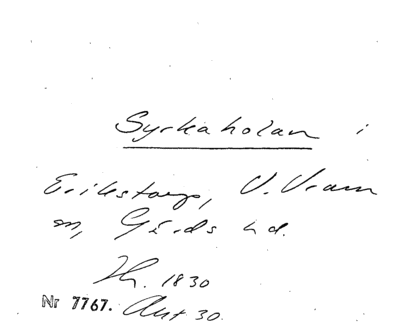 Syrkaholan i
Erikstorp, V. Vram
sn, Gärds hd.
Th. 1830
Nr 7767. Aut 30